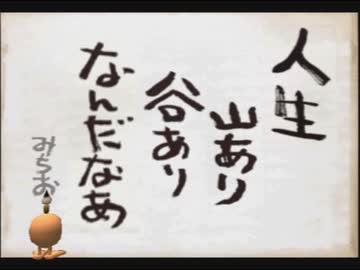 人生
山あり
谷あり
なんだなあ
みちお